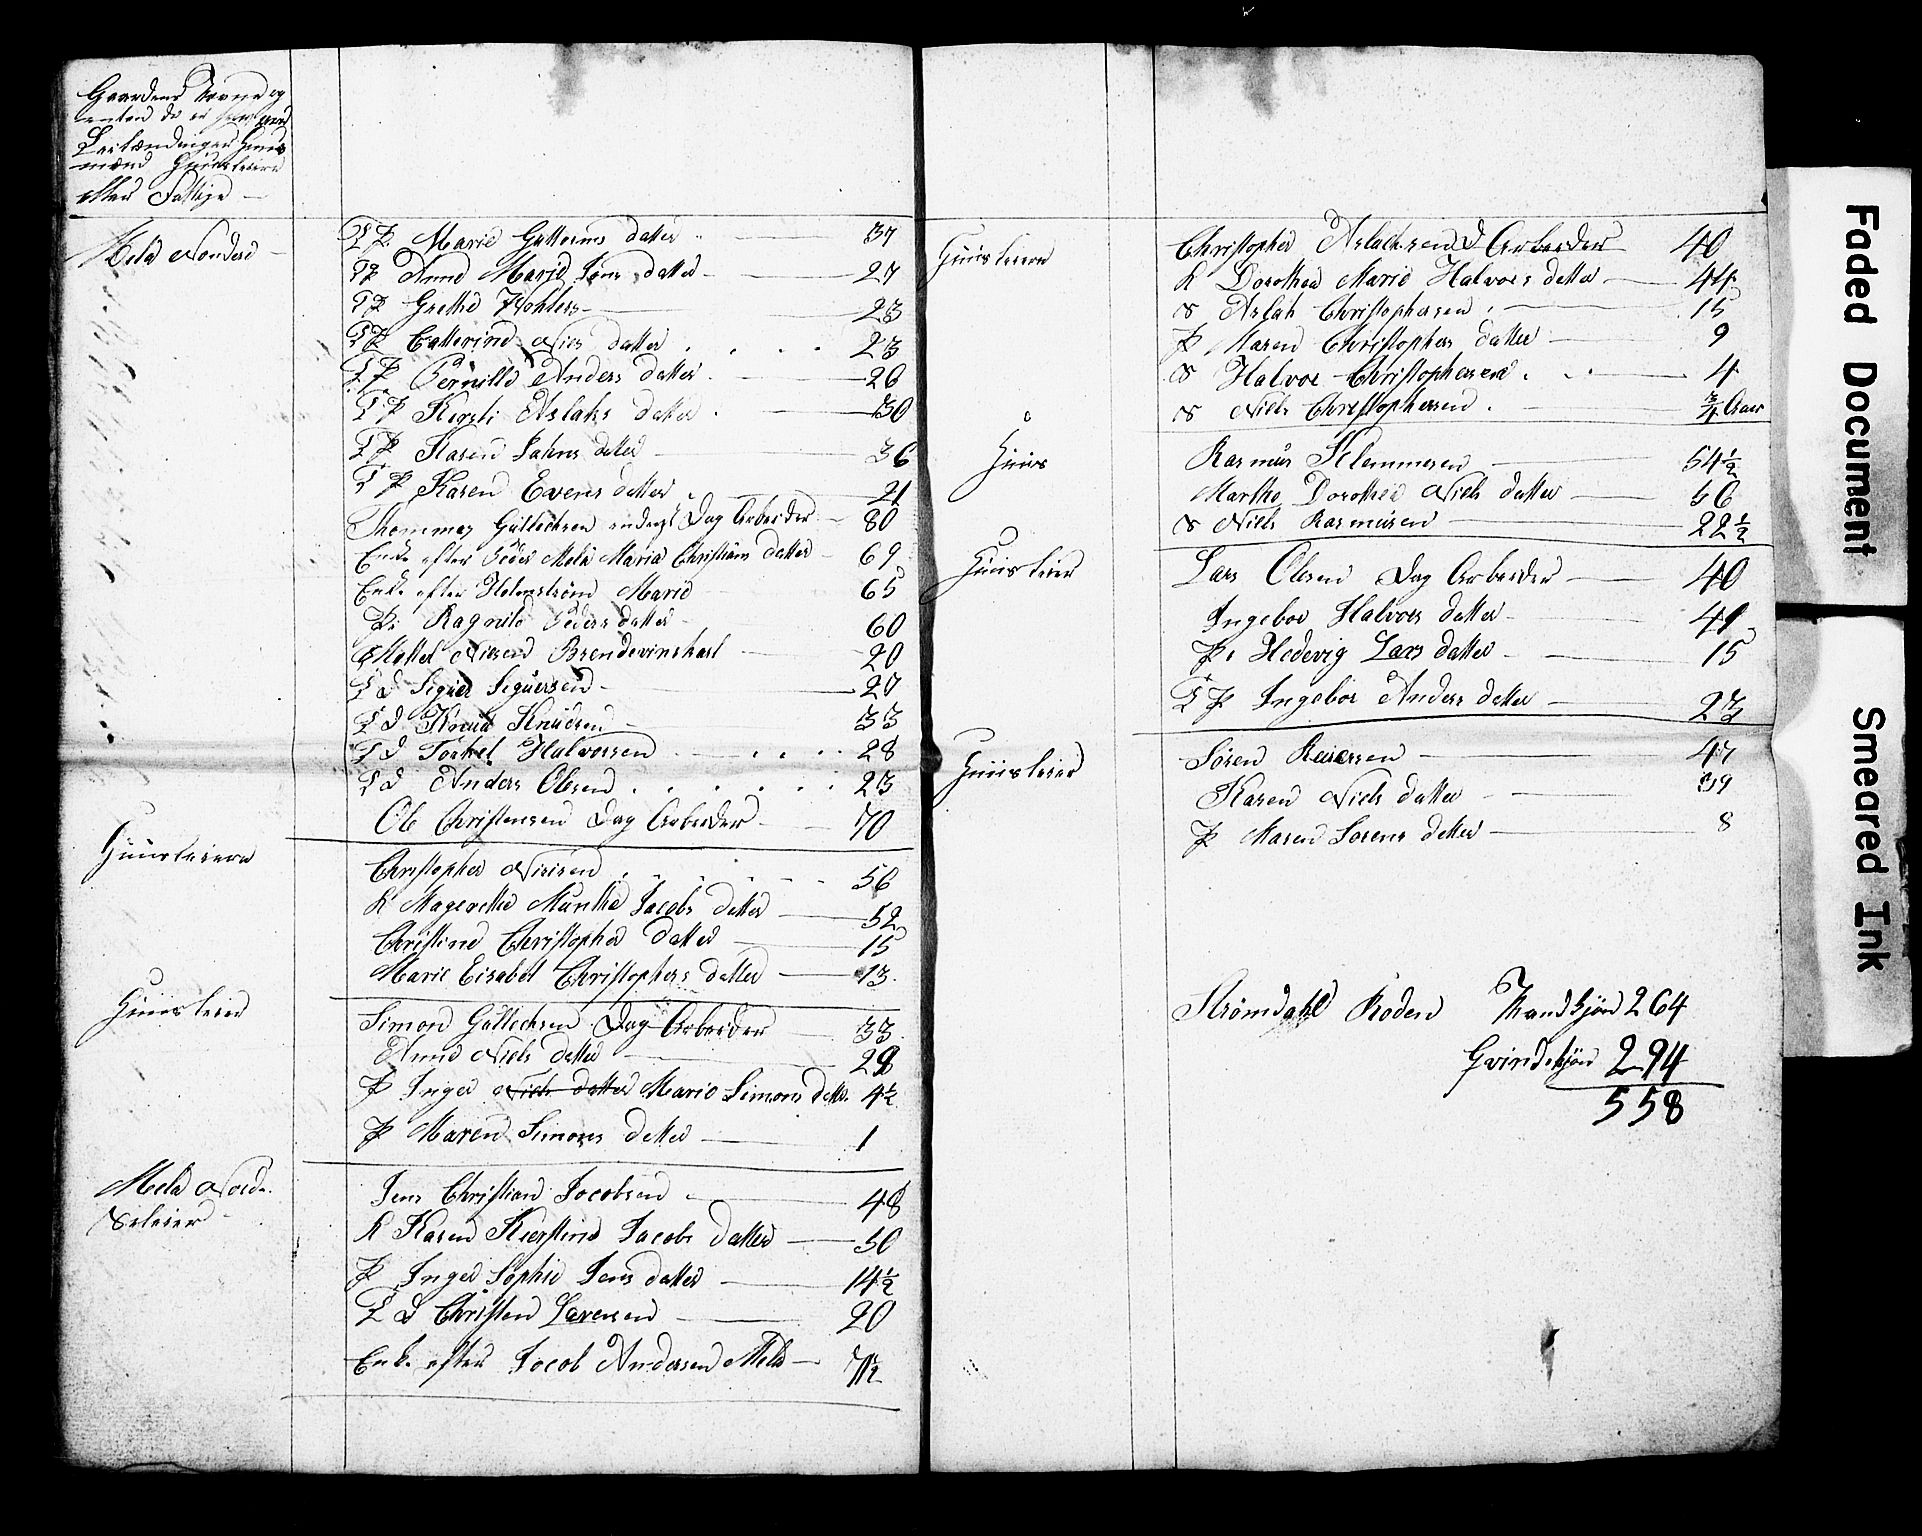 Gaardens Navne og
enten de er
Huus
mænd Huusleiere
eller Fattige —
Melø Nordere
T P. Marie Guttorms datter — 37
T P Anne Marie Jens datter — 27
T P Grethe Wohlers — 23
T P Catterine Niels datter . . . . 23
T P Pernille Anders datter — 26
T P Kirsti Aslaks datter . — 30
T P Karen Jahns datter — 36
T P Karen Evens datter — 21
Thommes Gullechsen Dag Arbeider — 80
Enke efter Peder Melø Maria Christians datter — 69
Enke efter Holmstrøm Marie 65
P: Ragnild Peders datter — 60
Mattel Nielsen Brendevinskarl — 20
T D Siguer Siguersen — 27
T D Knud Knudsen — 33
T D Torkel Halvorsen — . . . 28
T D Anders Olesen . . . . . . 23
Ole Christensen Dag Arbeider — 70
Huusleiere
Christopher Nielsen . . . . 56
K Magrethe Munthe Jacobs datter — 52
Christine Christopher datter — 15
Marie Eisabet Christophers datter — 13.
Huusleier
Simon Gullechsen Dag Arbeider — 33
Anne Niels datter — 29
P Inger Niels datter Marie Simons datter 4½
P Maren Simons datter — 1
Melø Nordr.
Seleier
Jens Christian Jacobsen — 48
K Karen Kierstine Jacobs datter — 50
P Inger Sophie Jens datter — 14½
T D Christen Larensen — 20
Enke efter Jacob Andersen Melø — 71½
Huusleiere
Christopher Aslachsen D Arbeider 40
K Dorothea Marie Halvors datter — 44
S Aslak Christophersen . — 15
P Maren Christophers datter — 9
S Halvor Christophersen . — 4
S Niels Christophersen . — ¾ Aar
Huus
Rasmus Klemmesen — 54½
Marthe Dorothea Niels datter — 56
S Niels Rasmusen — 22½
Huusleier
Lars Olesen Dag Arbeider — 40
Ingebor Halvors datter — 41
P. Hedevig Lars datter — 15
T P Ingebor Anders datter — 23
Huusleier
Søren Reiersen — 47
Karen Niels datter — 39
P Maren Sørens datter — 8
Strømdahl Roden Mandkjøn 264
Qvindekjøn 294
558
Faded Document
Smeared Ink